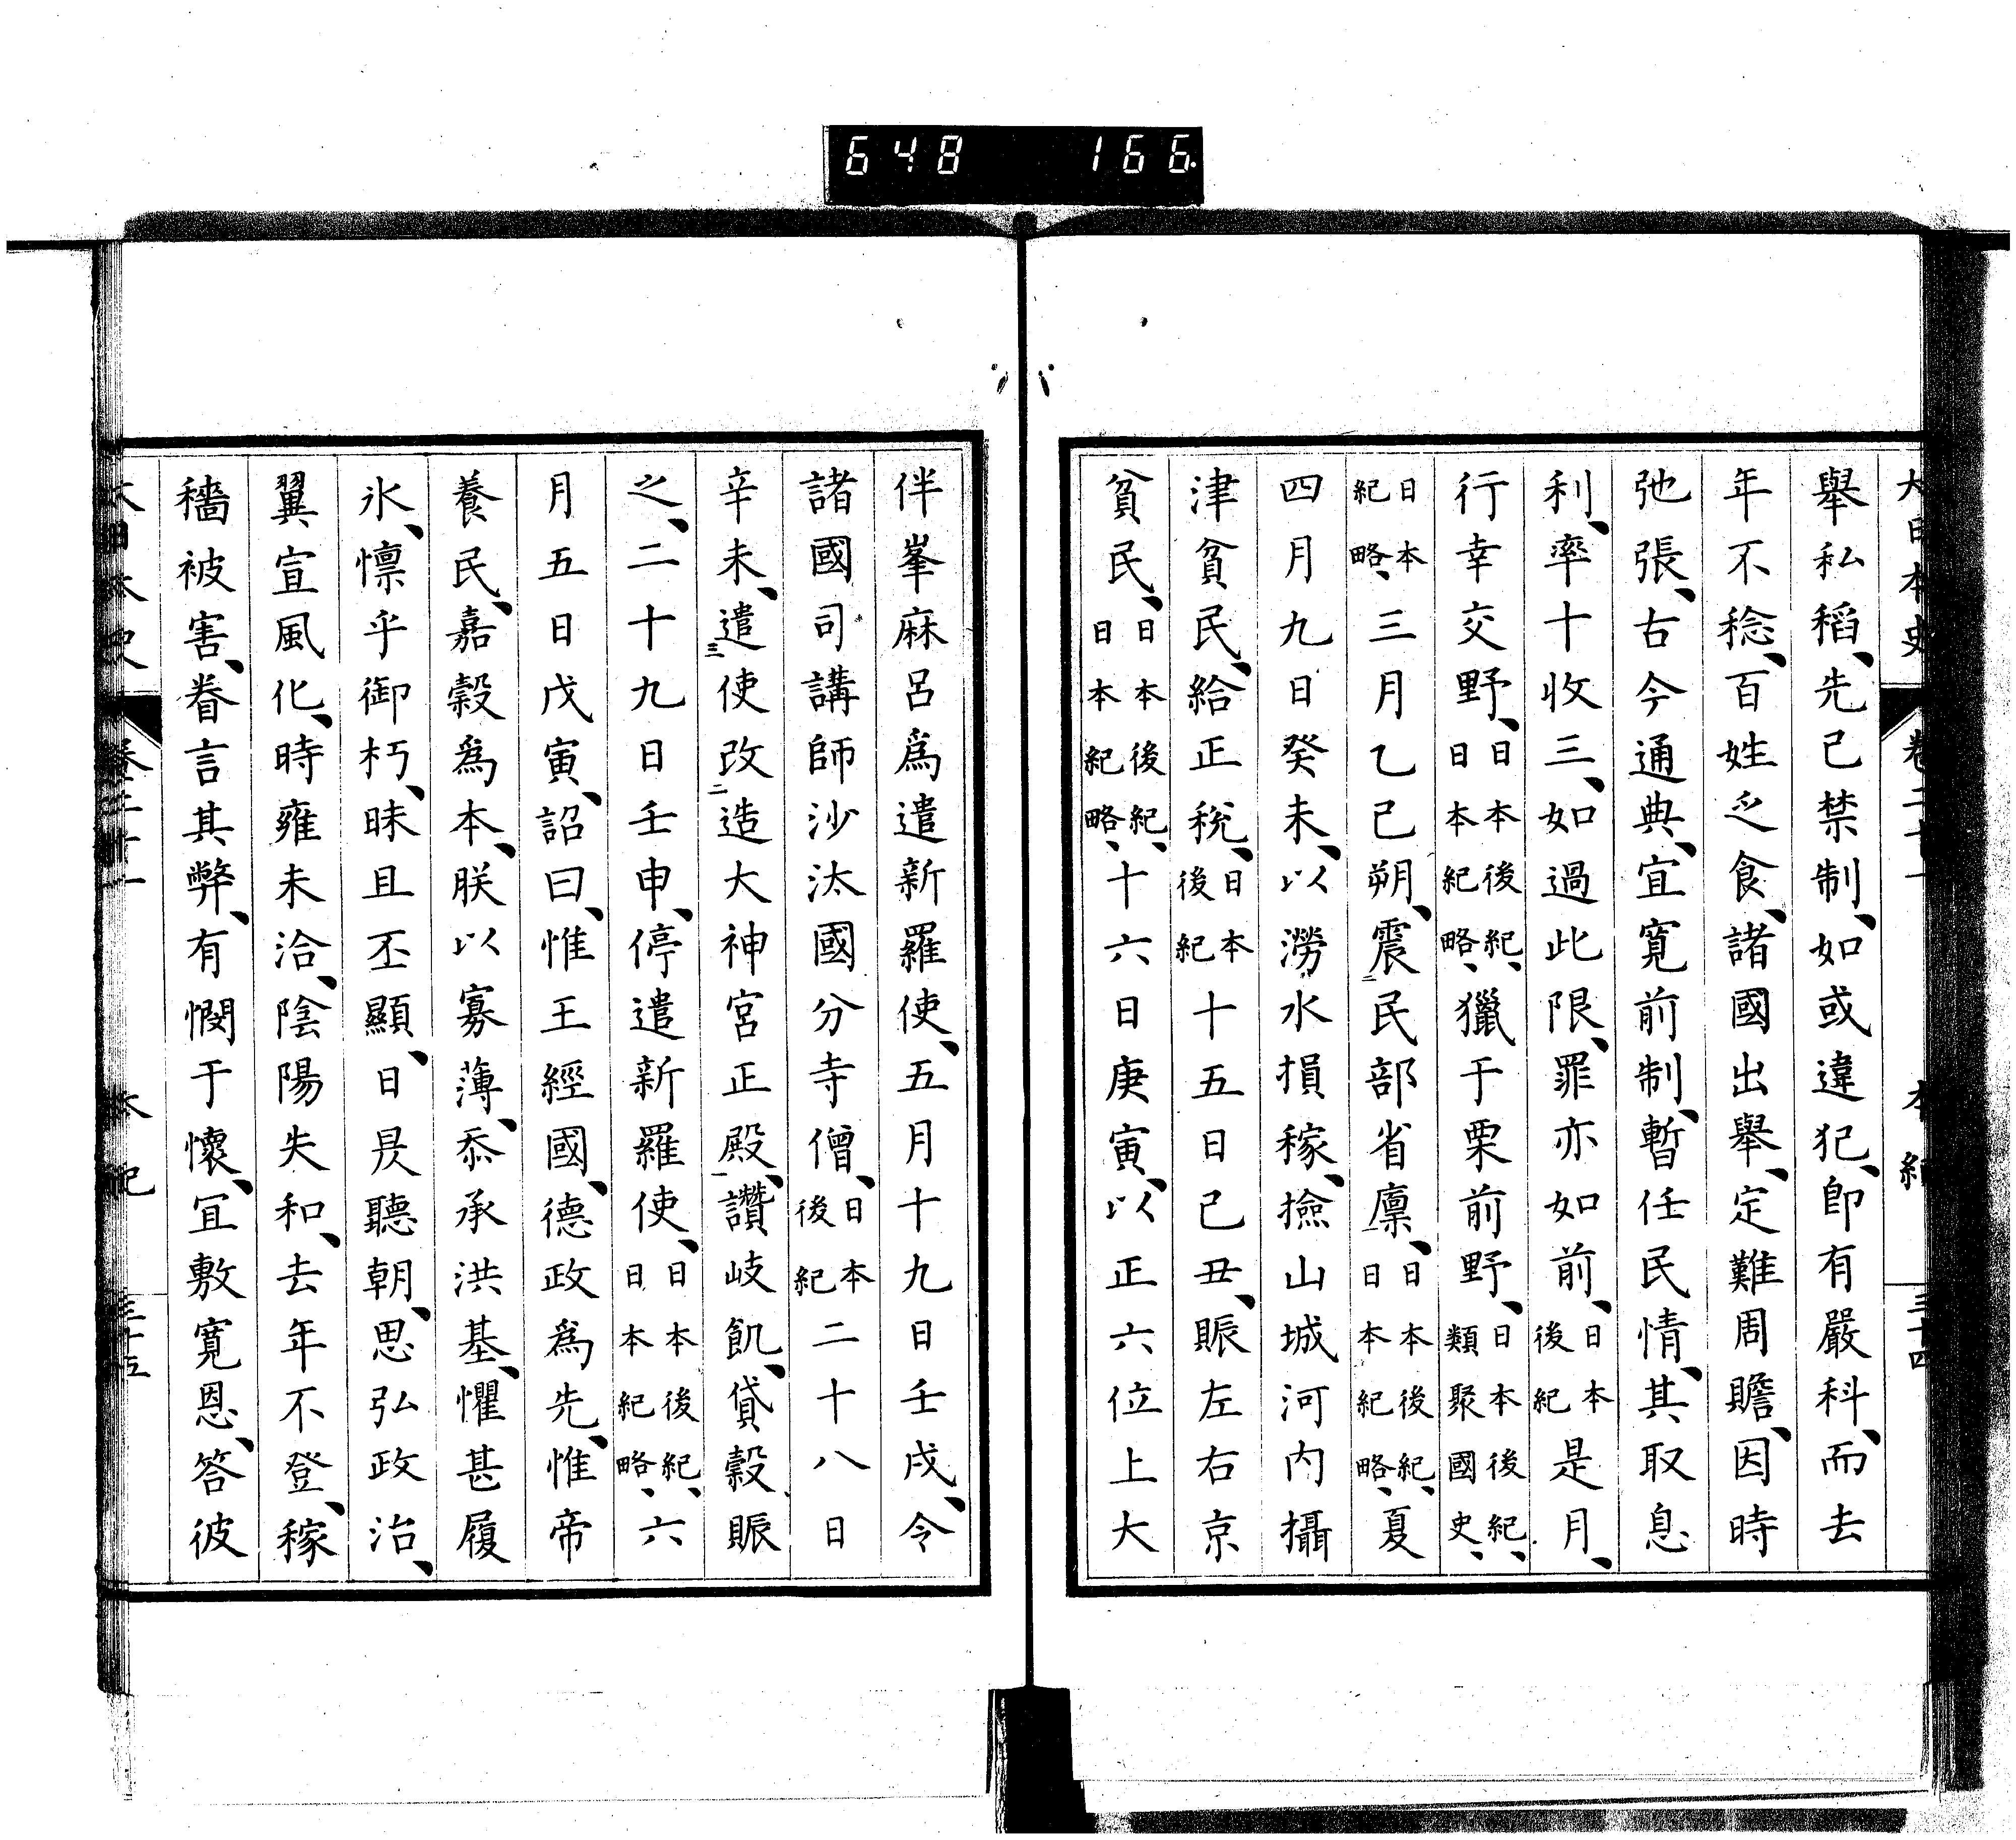 648 166
大日本史 卷二十一 本紀 三十四
舉私稻、先已禁制、如或違犯、卽有嚴科、而去
年不稔、百姓乏食、諸國出舉、定難周贍、因時
弛張、古今通典、宜寬前制、暫任民情、其取息
利、率十收三、如過此限、罪亦如前、日本後紀是月、
行幸交野、日本後紀、日本紀略、獵于栗前野、日本後紀、類聚國史、
日本紀略、三月乙己朔、震二民部省廩、一日本後紀、日本紀略、夏
四月九日癸未、以澇水損稼、撿山城河內攝
津貧民、給正稅、日本後紀十五日己丑、賑左右京
貧民、日本後紀、日本紀略、十六日庚寅、以正六位上大
伴峯麻呂爲遣新羅使、五月十九日壬戌、令
諸國司講師沙汰國分寺僧、日本後紀二十八日
辛未、遣三使改二造大神宮正殿、一讚岐飢、貸穀賑
之、二十九日壬申、停遣新羅使、日本後紀、日本紀略、六
月五日戊寅、詔曰、惟王經國、德政爲先、惟帝
養民、嘉穀爲本、朕以寡薄、忝承洪基、懼甚履
氷、懍乎御朽、昧旦丕顯、日昃聽朝、思弘政治、
翼宣風化、時雍未洽、陰陽失和、去年不登、稼
穡被害、眷言其弊、有憫于懷、宜敷寬恩、答彼
大日本史 卷二十一 本紀 三十五